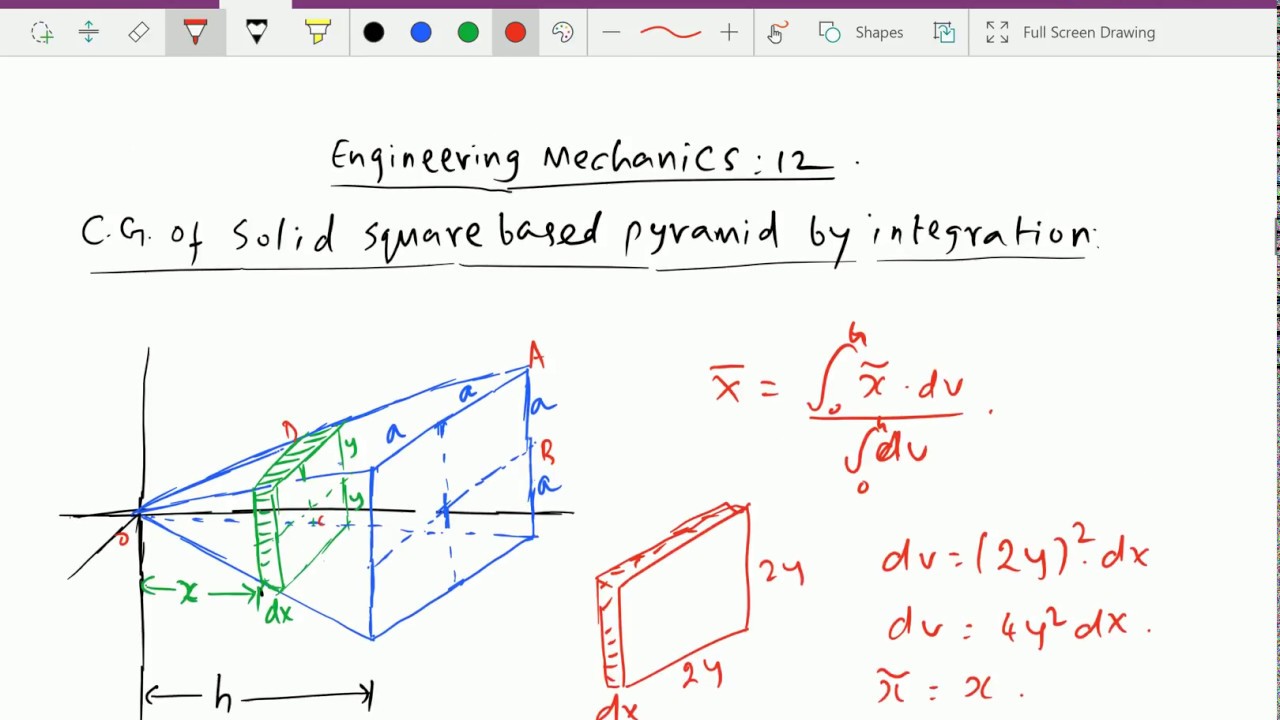 Shapes
Full Screen Drawing
Engineering Mechanics: 12.
C.G. of Solid square based pyramid by integration.
A
a
a
a
D
y
B
a
y
c
O
x
dx
h
x̄ = ∫₀ʰ x̃ · dv / ∫₀ʰ dv .
2y
2y
dx
dv = (2y)². dx
dv = 4y² dx .
x̃ = x .